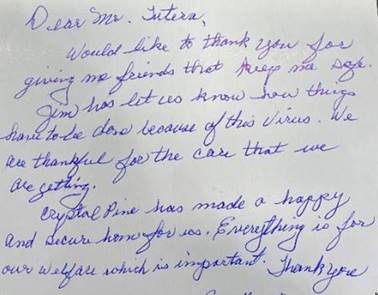 Dear Mr. Tutera,
Would like to thank you for
giving me friends that keep me safe.
Jim has let us know how things
have to be done because of this Virus. We
are thankful for the care that we
are getting.
Crystal Pine has made a happy
and secure home for us. Everything is for
our welfare which is important. Thank you